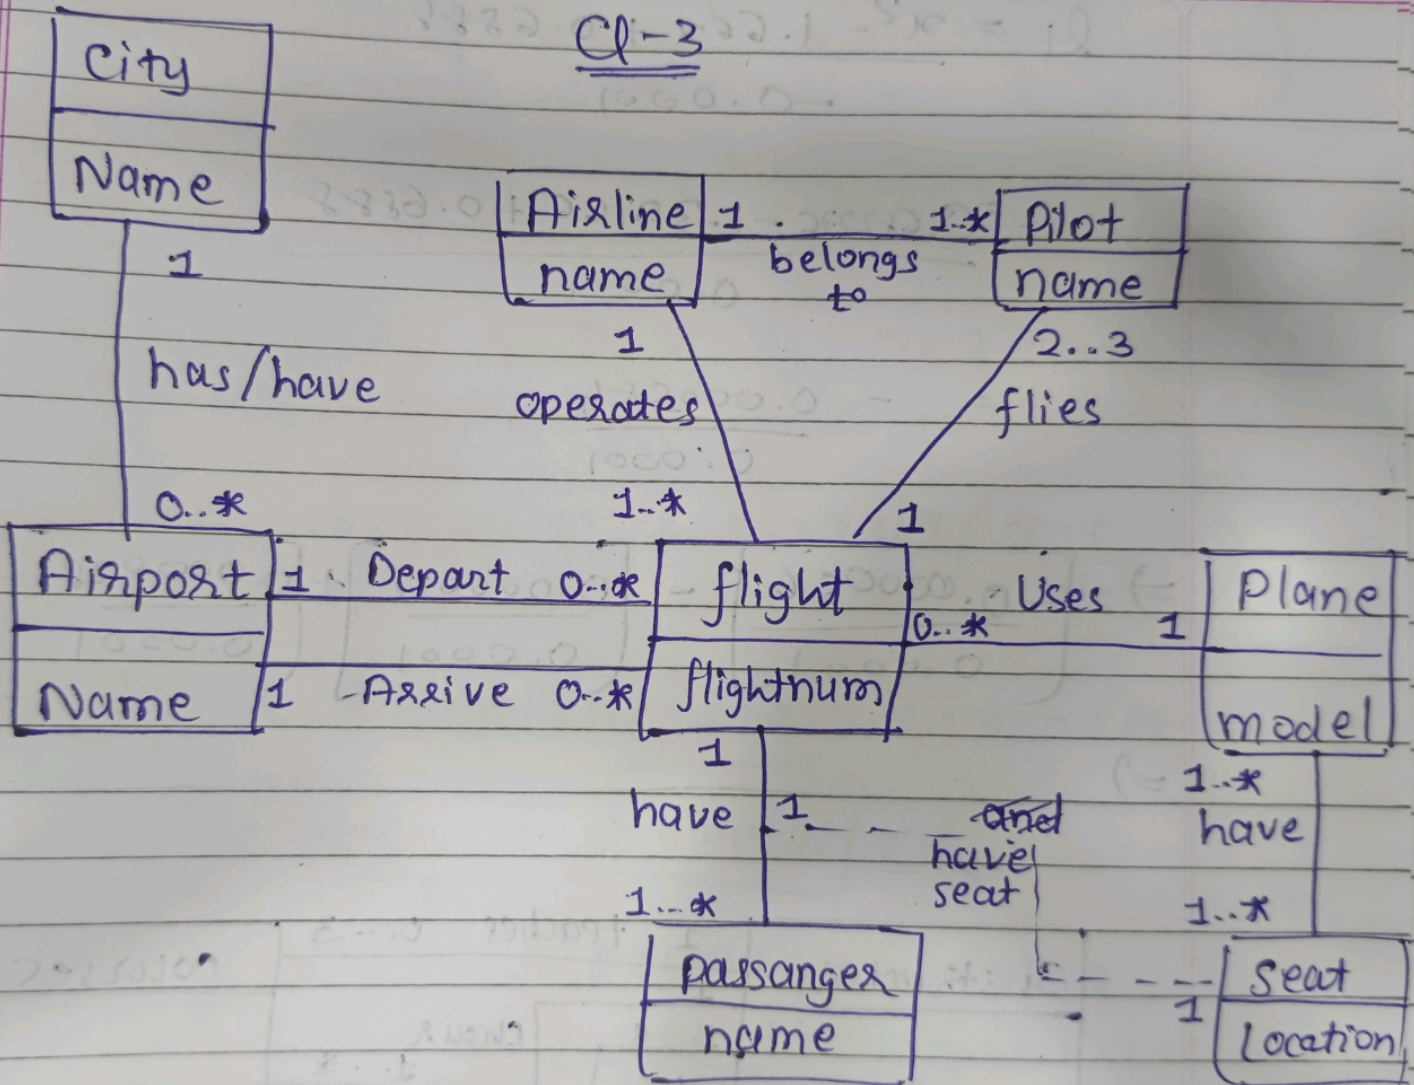 Q-3
City
Name
1
has/have
0..*
Airline
name
1
belongs
to
1..*
Pilot
name
1
operates
1..*
2..3
flies
1
Airport
Name
1 Depart 0..*
1 Arrive 0..*
flight
flightnum
0..* Uses 1
Plane
model
1
have
1...*
1
have
seat
1
1..*
have
1..*
passanger
name
Seat
Location